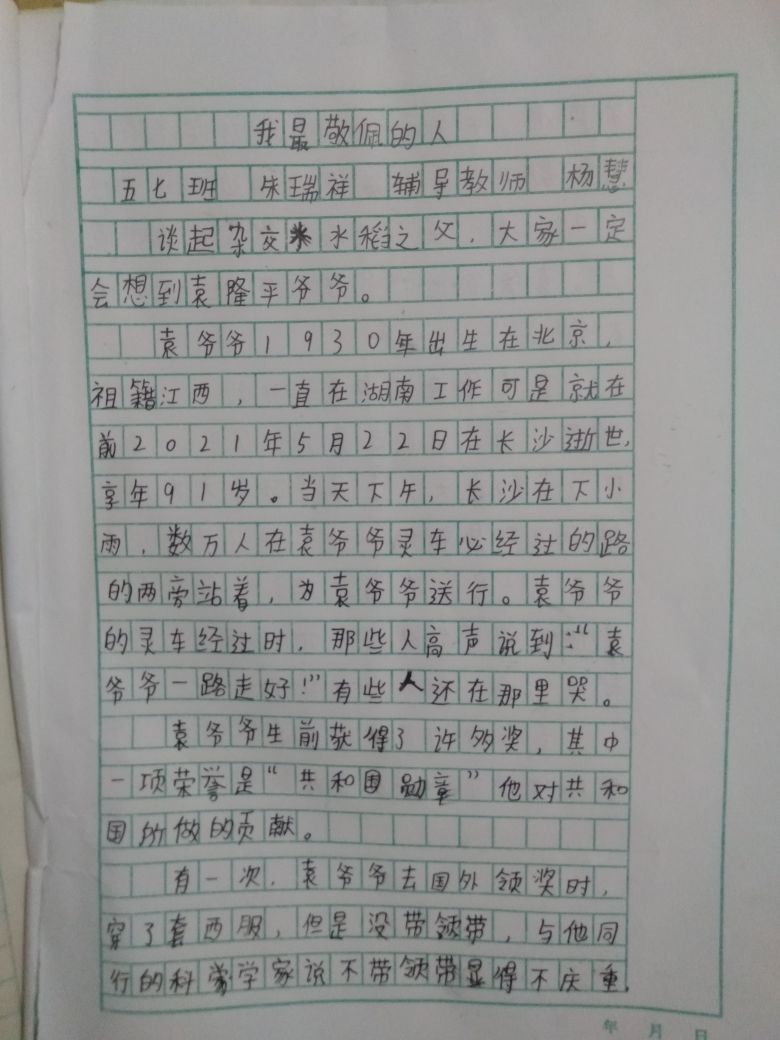 我最敬佩的人
五七班 朱瑞祥 辅导教师 杨慧
谈起杂交水稻之父，大家一定
会想到袁隆平爷爷。
袁爷爷1930年出生在北京，
祖籍江西，一直在湖南工作可是就在
前2021年5月22日在长沙逝世，
享年91岁。当天下午，长沙在下小
雨，数万人在袁爷爷灵车必经过的路
的两旁站着，为袁爷爷送行。袁爷爷
的灵车经过时，那些人高声说到：“袁
爷爷一路走好！”有些人还在那里哭。
袁爷爷生前获得了许多奖，其中
一项荣誉是“共和国勋章”他对共和
国所做的贡献。
有一次，袁爷爷去国外领奖时，
穿了套西服，但是没带领带，与他同
行的科学家说不带领带显得不庆重，
年 月 日